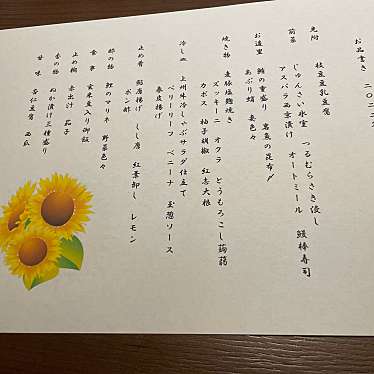 お品書き 二〇二
先附 枝豆豆乳豆腐
前菜 じゅんさい氷室 つるむらさき浸し
アスパラ西京漬け オートミール 鰻棒寿司
お造里 鰹の重盛り 昆布〆
あぶり蛸 妻色々
焼き物 麦豚塩麹焼き
ズッキーニ オクラ とうもろこし蒟蒻
カボス 柚子胡椒 紅志大根
冷し皿 上州牛冷しゃぶサラダ仕立て
ベリーリーフ ベニーナ 玉葱ソース
春皮揚げ
止め肴 鮎唐揚げ しし唐 紅葉卸し レモン
ポン酢
酢の物 鮑のマリネ 野菜色々
食事 玄米豆入り御飯
止め椀 赤出汁 茄子
香の物 ぬか漬け三種盛り
甘味 杏仁豆腐 西瓜